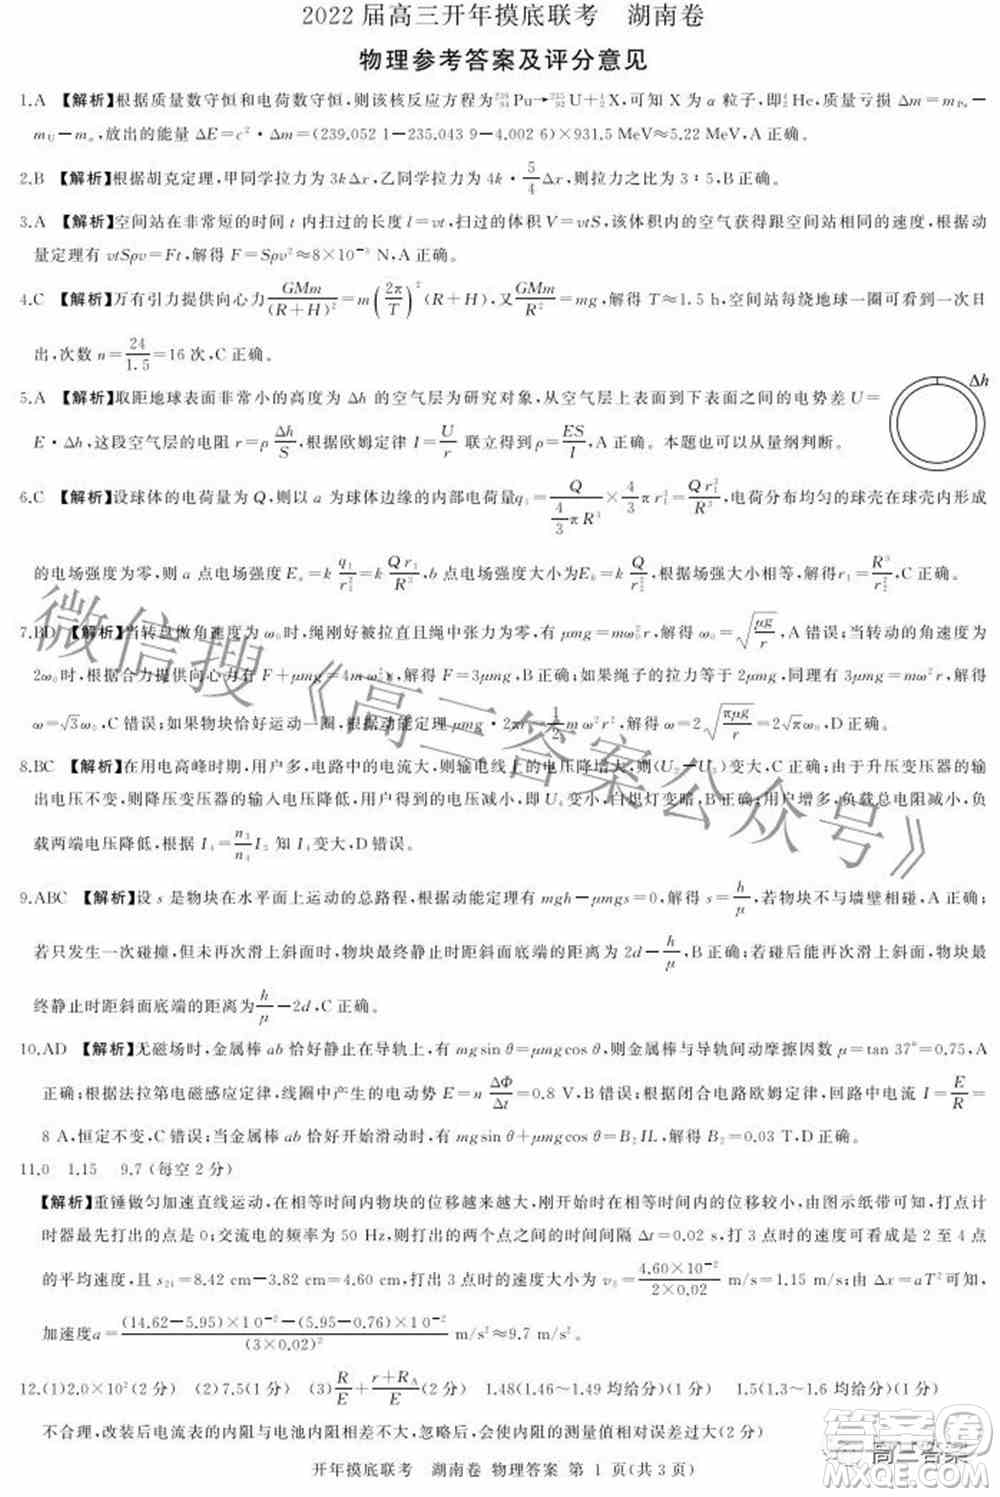 2022 届高三开年摸底联考 湖南卷
物理参考答案及评分意见
1.A 【解析】根据质量数守恒和电荷数守恒,则该核反应方程为 Pu→ U+ X,可知 X 为 α 粒子,即 He,质量亏损 Δm=m_Pu-
m_U-m_α,放出的能量 ΔE=c²·Δm=(239.052 1-235.043 9-4.002 6)×931.5 MeV≈5.22 MeV,A 正确。
2.B 【解析】根据胡克定理,甲同学拉力为 3kΔx,乙同学拉力为 4k·5/4Δx,则拉力之比为 3∶5,B 正确。
3.A 【解析】空间站在非常短的时间 t 内扫过的长度 l=vt,扫过的体积 V=vtS,该体积内的空气获得跟空间站相同的速度,根据动
量定理有 vtSρv=Ft,解得 F=Sρv²≈8×10⁻³ N,A 正确。
4.C 【解析】万有引力提供向心力 GMm/(R+H)²=m(2π/T)²(R+H),又 GMm/R²=mg,解得 T≈1.5 h,空间站每绕地球一圈可看到一次日
出,次数 n=24/1.5=16 次,C 正确。
Δh
5.A 【解析】取距地球表面非常小的高度为 Δh 的空气层为研究对象,从空气层上表面到下表面之间的电势差 U=
E·Δh,这段空气层的电阻 r=ρΔh/S,根据欧姆定律 I=U/r 联立得到 ρ=ES/I,A 正确。本题也可以从量纲判断。
6.C 【解析】设球体的电荷量为 Q,则以 a 为球体边缘的内部电荷量 q₁=Q/(4/3πR³)×4/3πr₁³=Qr₁³/R³,电荷分布均匀的球壳在球壳内形成
的电场强度为零,则 a 点电场强度 E_a=k q₁/r₁²=k Qr₁/R³,b 点电场强度大小为 E_b=k Q/r₂²,二者大小相等,解得 r₁=R³/r₂²,C 正确。
7.BD 【解析】当转盘做角速度为 ω₀ 时,绳刚好被拉直且绳中张力为零,有 μmg=mω₀²r,解得 ω₀=√(μg/r),A 错误;当转动的角速度为
2ω₀ 时,绳子与摩擦力的合力提供向心力有 F+μmg=4mω₀²r,解得 F=3μmg,B 正确;如果绳子的拉力 F=2μmg,同理有 3μmg=mω²r,解得
ω=√3ω₀,C 错误;如果物块恰好运动一圈,根据动能定理 μmg·2πr=1/2mω²r²,解得 ω=2√(πμg/r)=2√πω₀,D 正确。
8.BC 【解析】在用电高峰时期,用户增多,电路中的电流大,则输电线上的电压降增大,则(U₂-U₃)变大,A 错误;由于升压变压器的输出
电压不变,则降压变压器的输入电压减小,降压变压器的输出电压减小,即 U₄ 变小,白炽灯变暗,B 正确;用户增多,负载总电阻减小,负
载两端电压降低,根据 I₄=n₃/n₄ I₃ 知 I₄ 变大,D 错误。
9.ABC 【解析】设 s 是物块在水平面上运动的总路程,根据动能定理有 mgh-μmgs=0,解得 s=h/μ,若物块不与墙壁相碰,A 正确;
若只发生一次碰撞,但未再次滑上斜面,物块最终静止时距斜面底端的距离为 2d-h/μ,B 正确;若碰后滑上斜面,物块最
终静止时距斜面底端的距离为 h/μ-2d,C 正确。
10.AD 【解析】无磁场时,金属棒 ab 恰好静止在导轨上,有 mgsin θ=μmgcos θ,则金属棒与导轨间动摩擦因数 μ=tan 37°=0.75,A
正确;根据法拉第电磁感应定律,线圈中产生的电动势 E=nΔΦ/Δt=0.8 V,B 错误;根据闭合电路欧姆定律,回路中电流 I=E/R=
8 A,恒定不变,C 错误;当金属棒 ab 恰好开始滑动时,有 mgsin θ+μmgcos θ=B₂IL,解得 B₂=0.03 T,D 正确。
11.0 1.15 9.7(每空 2 分)
【解析】重锤做匀加速直线运动,在相等时间内物块的位移越来越大,刚开始时的相等时间内的位移最小,由图示纸带可知,打点计
时器最先打出的点是 0;交流电的频率为 50 Hz,相邻打出的两个点之间的时间间隔 Δt=0.02 s,打 3 点时的速度可看成是 2 至 4 点
的平均速度,且 s₂₄=8.42 cm-3.82 cm=4.60 cm,打出 3 点时的速度大小为 v₃=4.60×10⁻²/(2×0.02) m/s=1.15 m/s;由 Δx=aT² 可知,
加速度 a=[(14.62-5.95)×10⁻²-(5.95-0.76)×10⁻²]/(3×0.02)² m/s²≈9.7 m/s²。
12.(1)2.0×10²(2 分) (2)7.5(1 分) (3)R/E+(r+R_A)/E(2 分) 1.48(1.46~1.49 均给分)(2 分) 1.5(1.3~1.6 均给分)(2 分)
不合理,改装后电流表的内阻与电池内阻相差太多,会使内阻的测量误差比较大(2 分)
开年摸底联考 湖南卷 物理答案 第 1 页(共 3 页)
微信搜《高三答案公众号》
高三答案